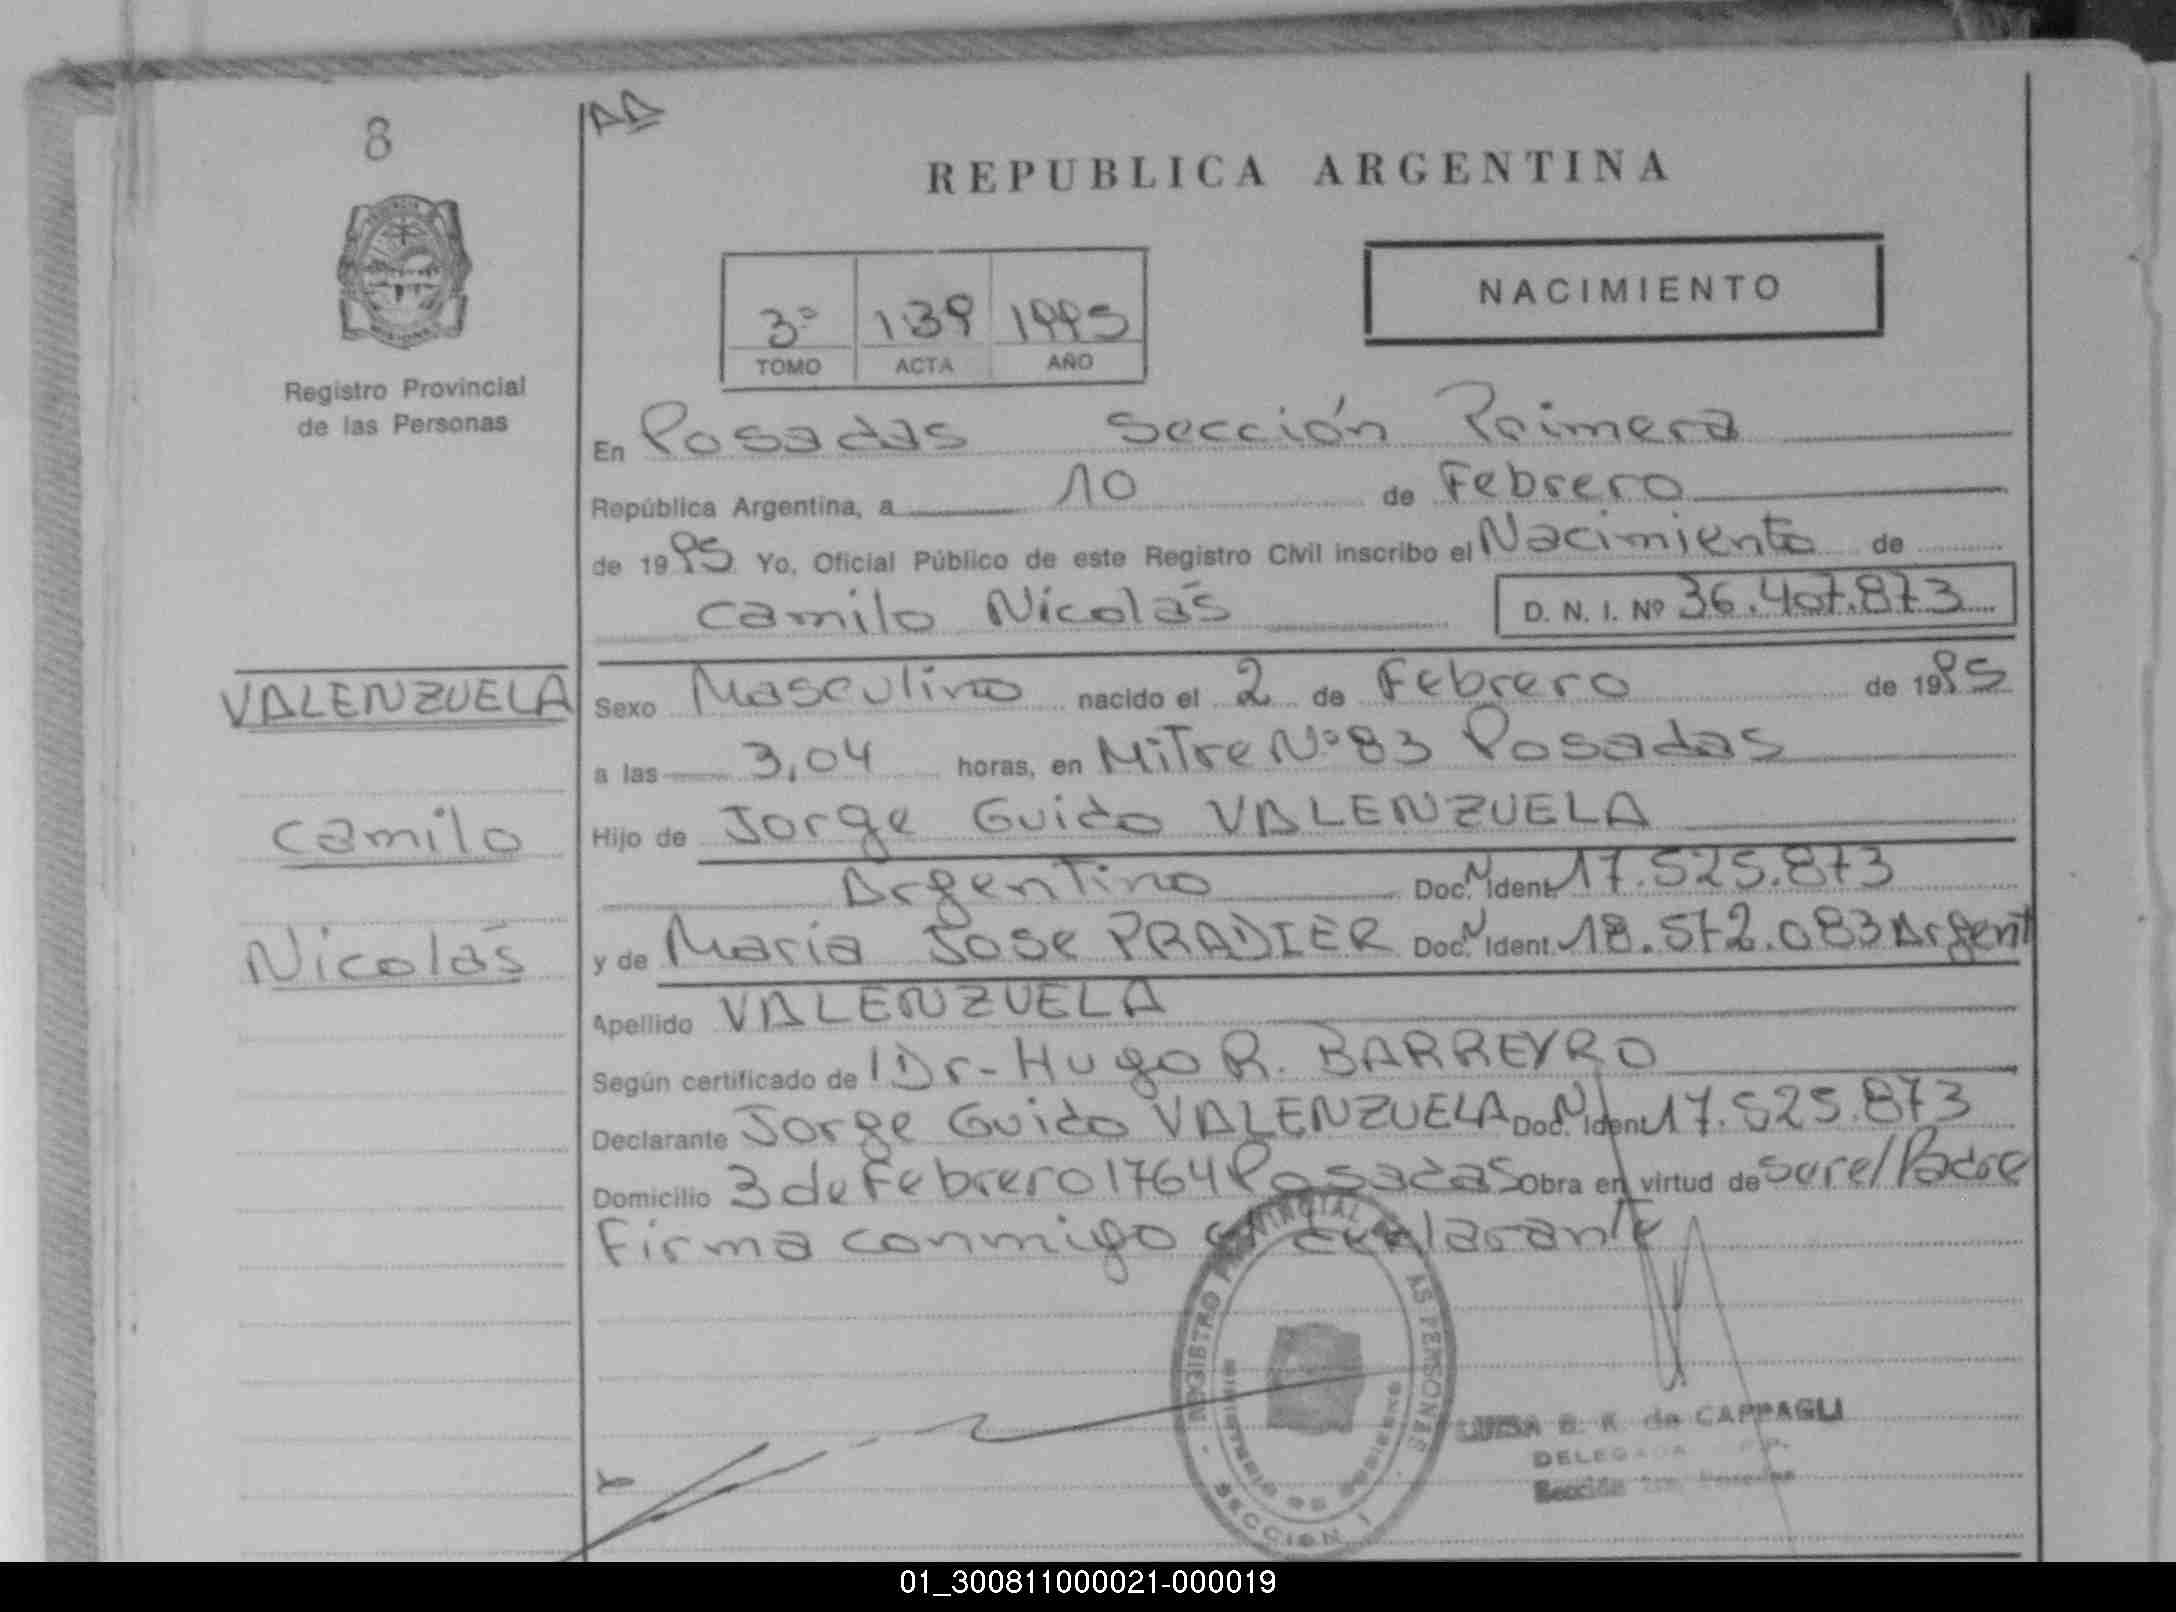 8
REPUBLICA ARGENTINA
NACIMIENTO
3º 139 1995
TOMO ACTA AÑO
Registro Provincial
de las Personas
En Posadas Sección Primera
República Argentina, a 10 de Febrero
de 1995 Yo, Oficial Público de este Registro Civil inscribo el Nacimiento de
Camilo Nicolás D. N. I. Nº 36.407.873
VALENZUELA
Camilo
Nicolás
Sexo Masculino nacido el 2 de Febrero de 1995
a las 3,04 horas, en Mitre Nº 83 Posadas
Hijo de Jorge Guido VALENZUELA
Argentino Doc. N Ident. 17.525.873
y de Maria Jose PRADIER Doc. N Ident. 18.572.083 Argent
Apellido VALENZUELA
Según certificado de Dr. Hugo R. BARREYRO
Declarante Jorge Guido VALENZUELA Doc. N Ident. 17.525.873
Domicilio 3 de Febrero 1764 Posadas Obra en virtud de ser el Padre
Firma conmigo el declarante
REGISTRO PROVINCIAL DE LAS PERSONAS
MINISTERIO DE GOBIERNO
SECCION 1
LUISA B. K. de CAPPAGLI
DELEGADA R.P.P.
Sección 1ra Posadas
01_300811000021-000019